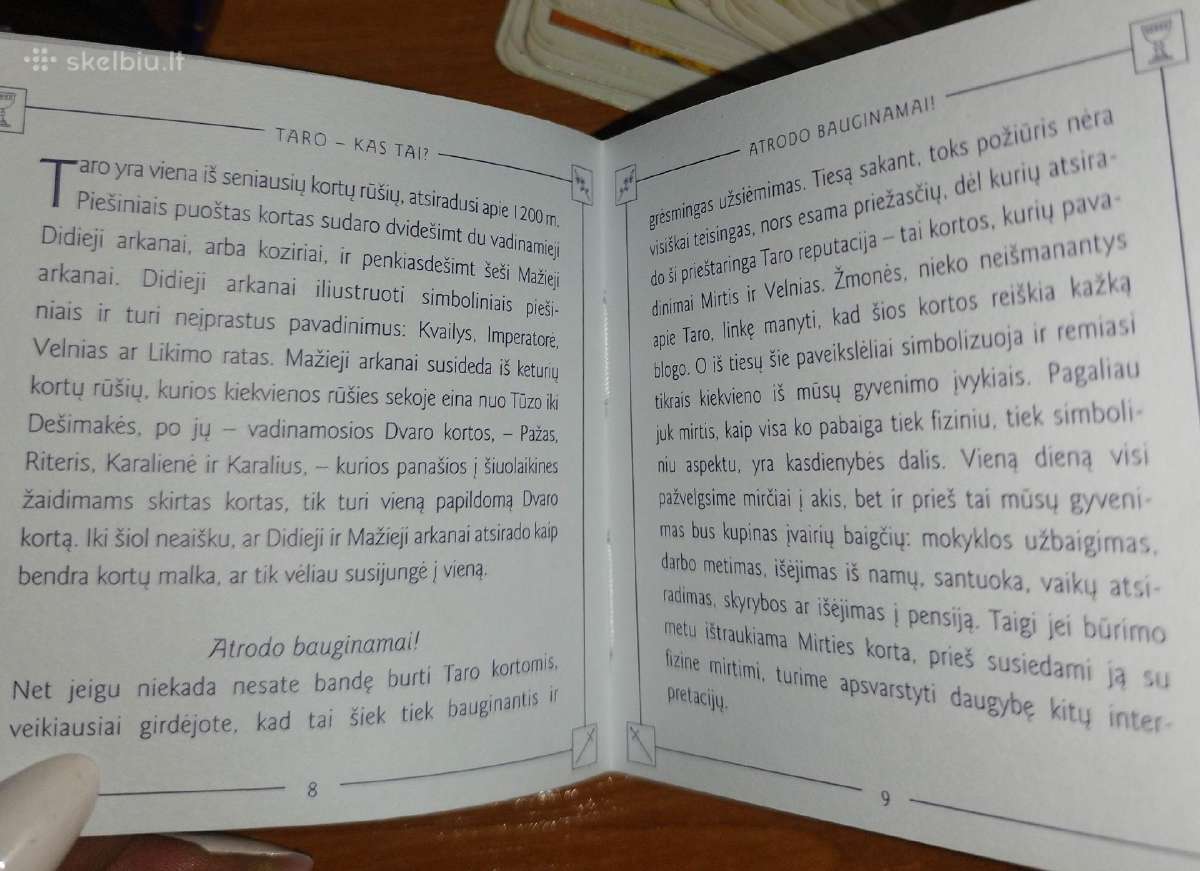 skelbiu.lt
TARO – KAS TAI?
Taro yra viena iš seniausių kortų rūšių, atsiradusi apie 1200 m.
Piešiniais puoštas kortas sudaro dvidešimt du vadinamieji
Didieji arkanai, arba koziriai, ir penkiasdešimt šeši Mažieji
arkanai. Didieji arkanai iliustruoti simboliniais pieši-
niais ir turi neįprastus pavadinimus: Kvailys, Imperatorė,
Velnias ar Likimo ratas. Mažieji arkanai susideda iš keturių
kortų rūšių, kurios kiekvienos rūšies sekoje eina nuo Tūzo iki
Dešimakės, po jų – vadinamosios Dvaro kortos, – Pažas,
Riteris, Karalienė ir Karalius, – kurios panašios į šiuolaikines
žaidimams skirtas kortas, tik turi vieną papildomą Dvaro
kortą. Iki šiol neaišku, ar Didieji ir Mažieji arkanai atsirado kaip
bendra kortų malka, ar tik vėliau susijungė į vieną.
Atrodo bauginamai!
Net jeigu niekada nesate bandę burti Taro kortomis,
veikiausiai girdėjote, kad tai šiek tiek bauginantis ir
8
ATRODO BAUGINAMAI!
grėsmingas užsiėmimas. Tiesą sakant, toks požiūris nėra
visiškai teisingas, nors esama priežasčių, dėl kurių atsira-
do ši prieštaringa Taro reputacija – tai kortos, kurių pava-
dinimai Mirtis ir Velnias. Žmonės, nieko neišmanantys
apie Taro, linkę manyti, kad šios kortos reiškia kažką
blogo. O iš tiesų šie paveikslėliai simbolizuoja ir remiasi
tikrais kiekvieno iš mūsų gyvenimo įvykiais. Pagaliau
juk mirtis, kaip visa ko pabaiga tiek fiziniu, tiek simboli-
niu aspektu, yra kasdienybės dalis. Vieną dieną visi
pažvelgsime mirčiai į akis, bet ir prieš tai mūsų gyveni-
mas bus kupinas įvairių baigčių: mokyklos užbaigimas,
darbo metimas, išėjimas iš namų, santuoka, vaikų atsi-
radimas, skyrybos ar išėjimas į pensiją. Taigi jei būrimo
metu ištraukiama Mirties korta, prieš susiedami ją su
fizine mirtimi, turime apsvarstyti daugybę kitų inter-
pretacijų.
9